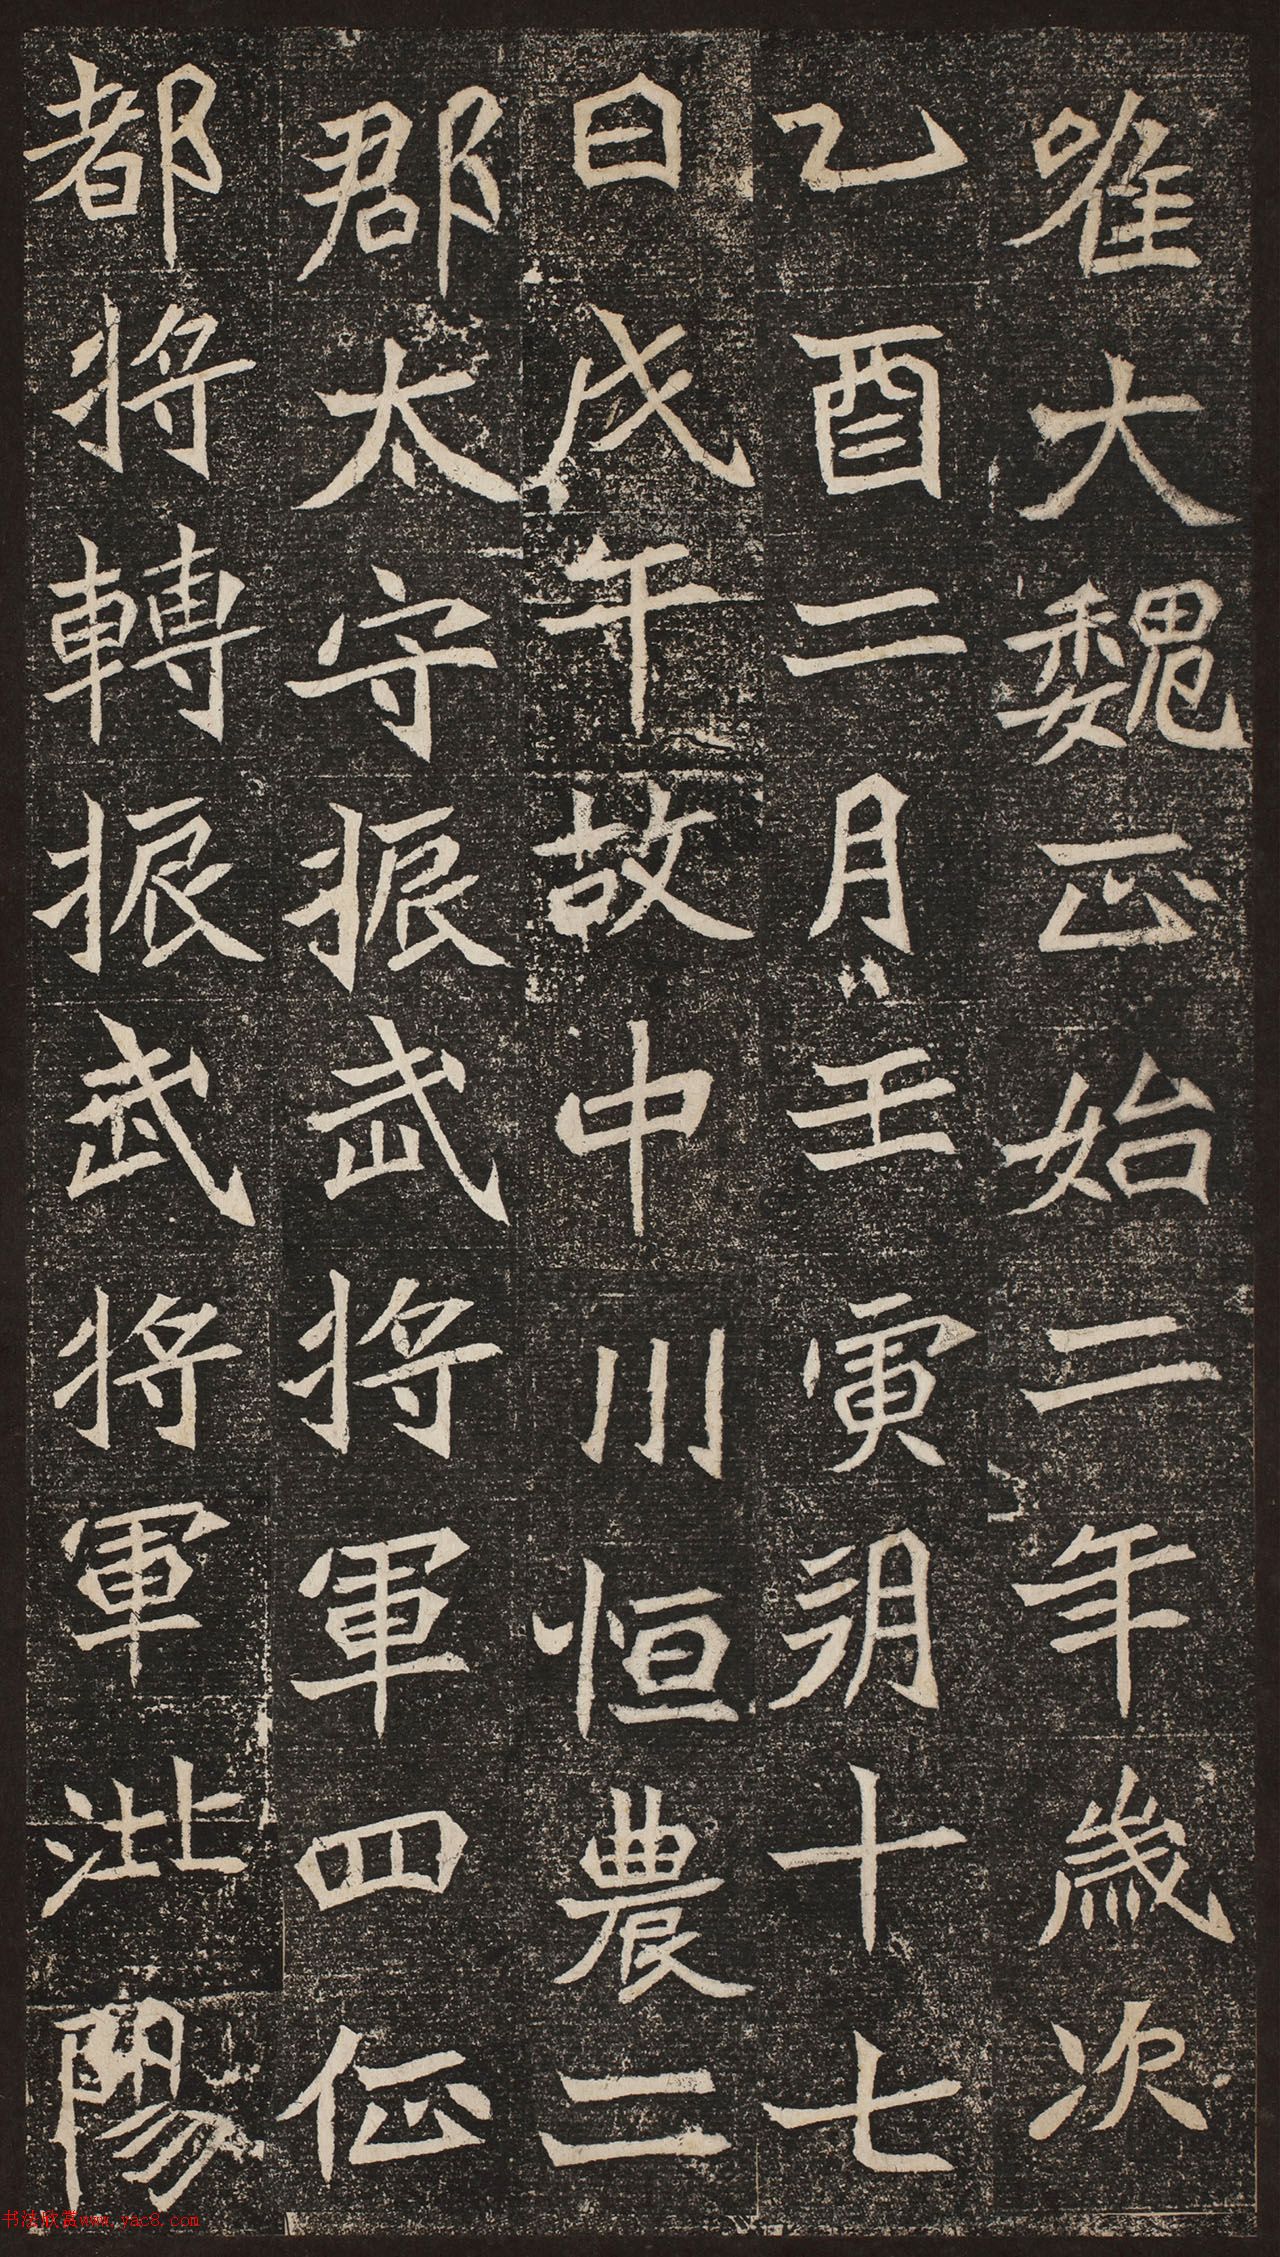 唯大魏正始二年歲次
乙酉二月壬寅朔十七
日戊午故中川恒農二
郡太守振武將軍四征
都將轉振武將軍沘陽
书法欣赏www.yac8.com